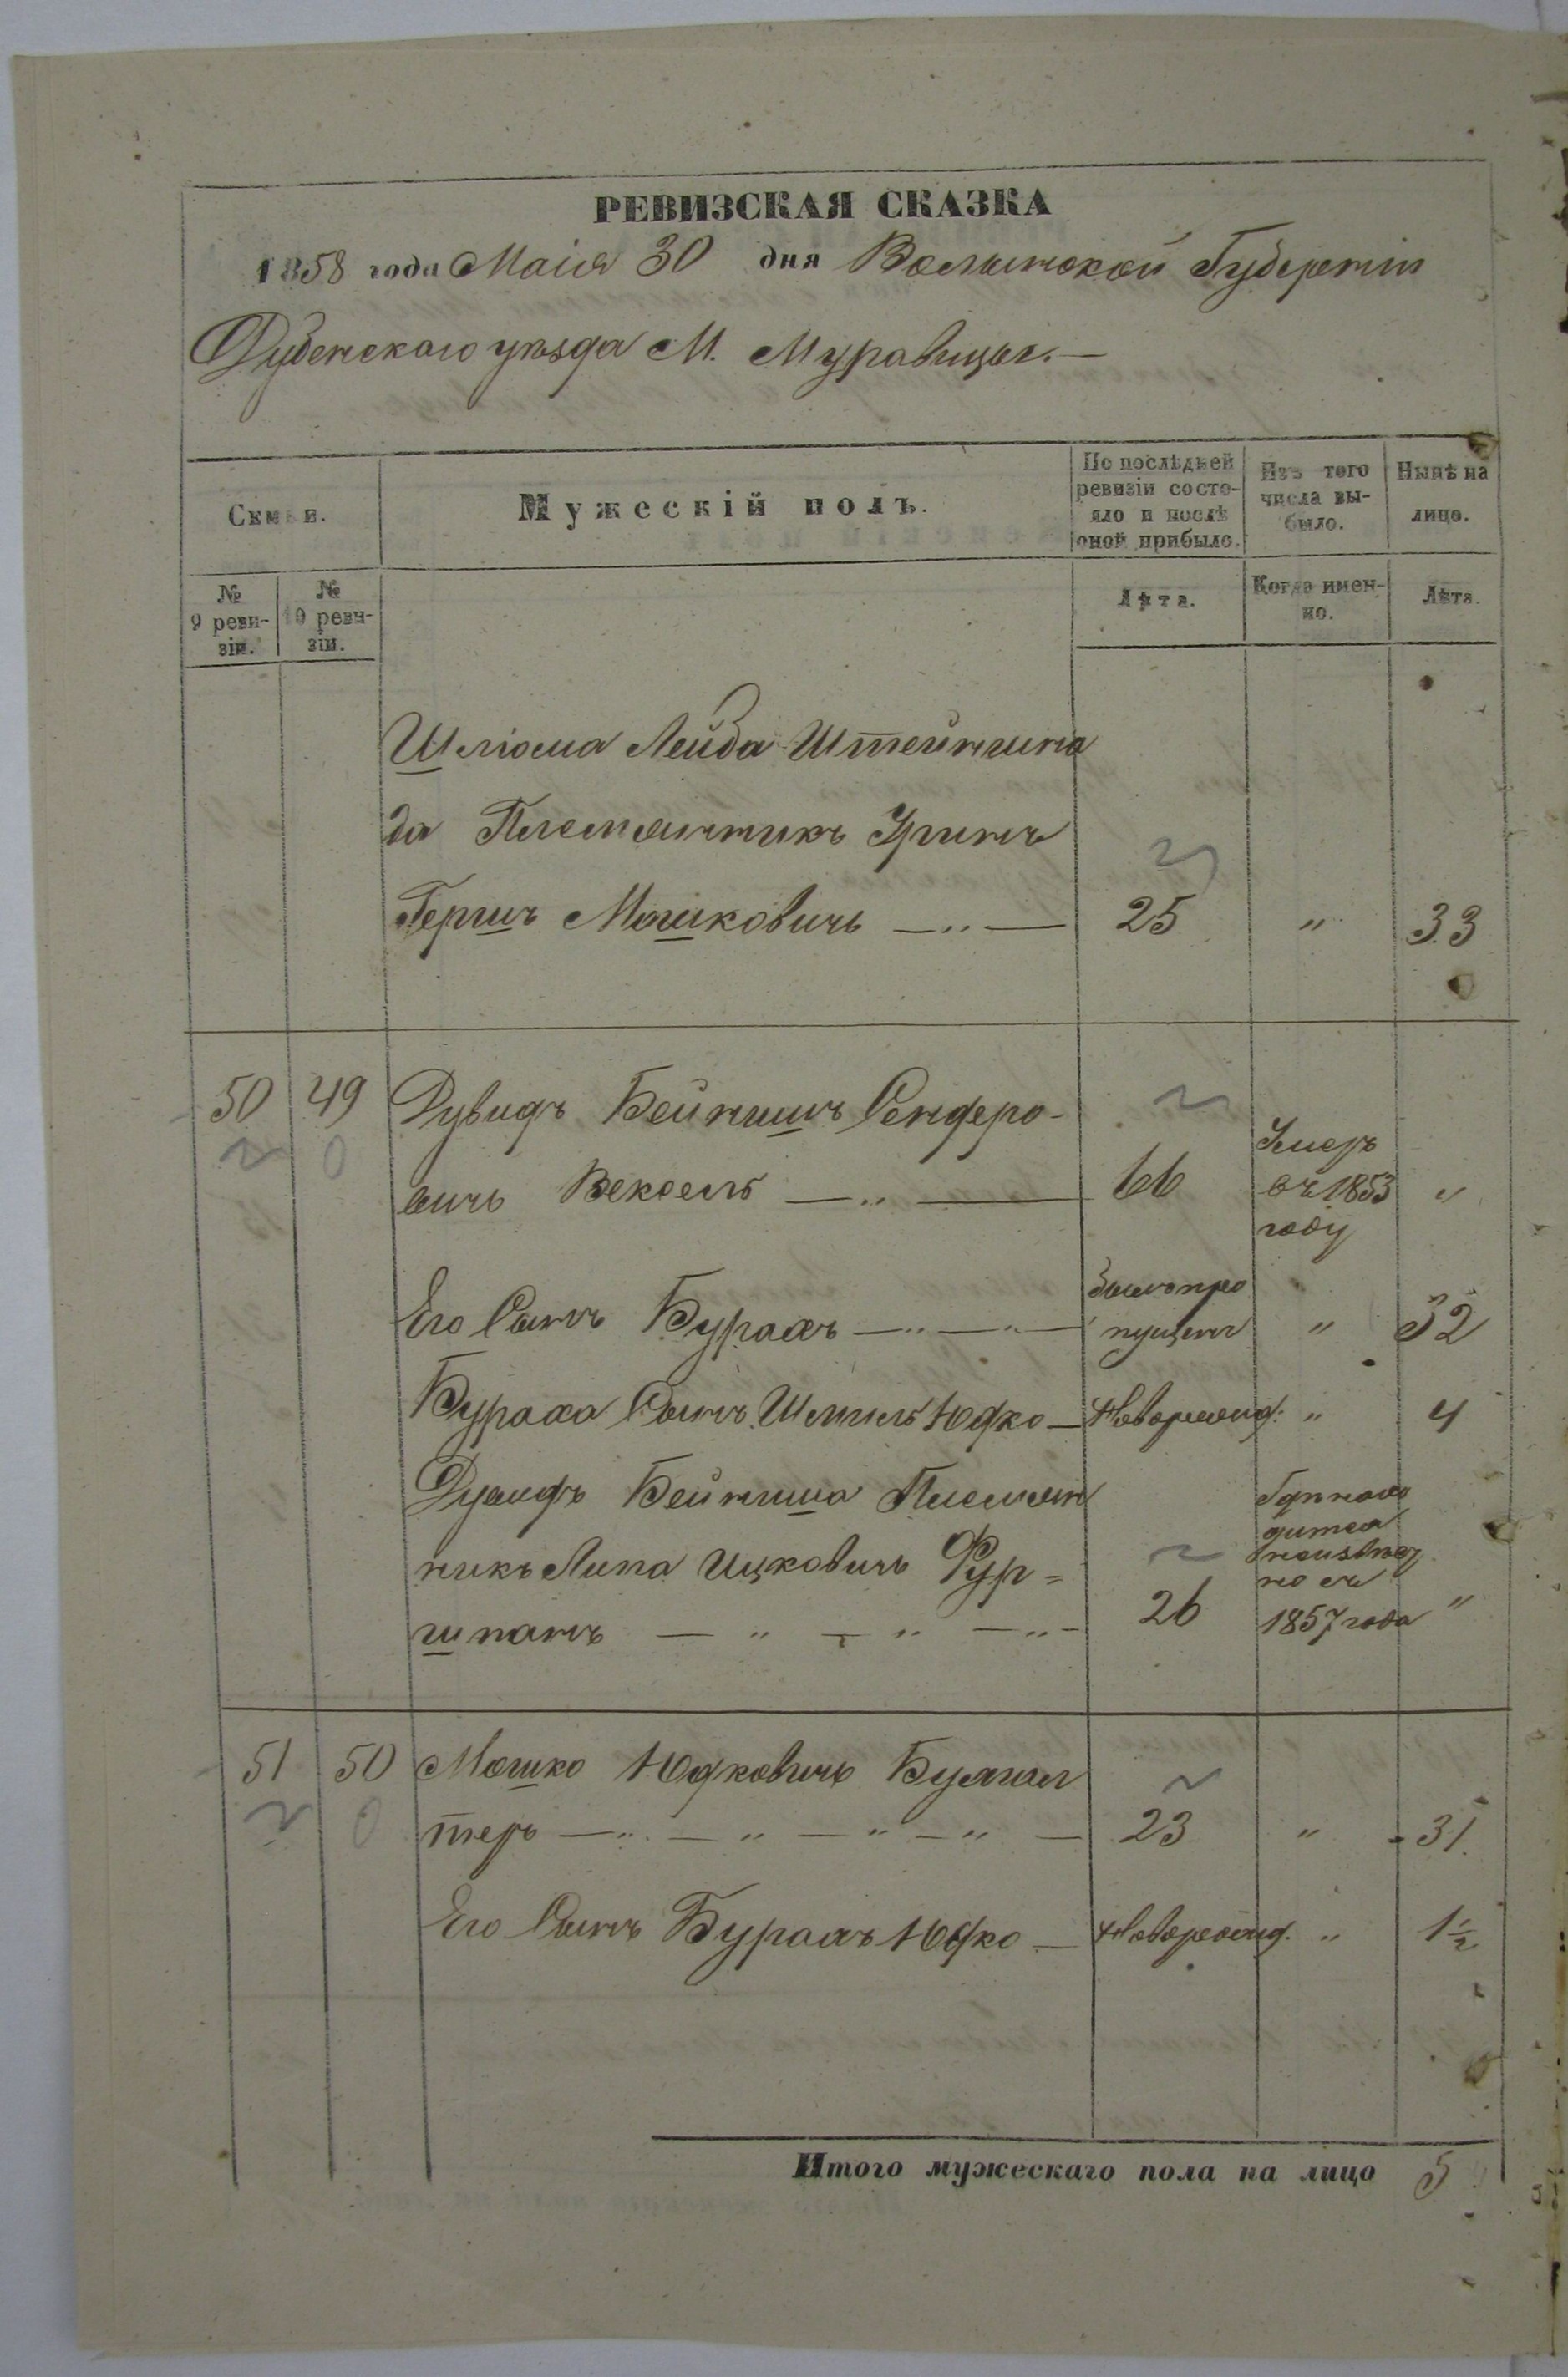 РЕВИЗСКАЯ СКАЗКА
1858 года Маія 30 дня Волынской Губерніи
Дубенскаго уѣзда М. Муравицы.—
Семьи.
Мужескій полъ.
По послѣдней ревизіи состояло и послѣ оной прибыло.
Изъ того числа выбыло.
Нынѣ на лицо.
№ 9 ревизіи.
№ 10 ревизіи.
Лѣта.
Когда именно.
Лѣта.
Шліома Лейба Штейншна
да Племянникъ
Гершъ Мошковичъ —„— 25 „ 33
50 49 Дувидъ Бейнишъ Сендеро-
вичъ Вексель —„— 66 Умеръ въ 1853 году „
Его Сынъ Бурахъ —„—„— былъ пропущенъ „ 32
Бураха Сынъ Шмиль Юдко — Новорожд: „ 4
Дувидъ Бейниша Племян
никъ Липа Ицковичъ Фур=
шпанъ — „ — „ —„— 26 Гдѣ находится неизвѣстно съ 1857 года „
51 50 Мошко Юдковичъ Бухгал
теръ —„— „ — „ — „ — 23 „ 31.
Его Сынъ Бурахъ Юдко — Новорожд. „ 1½
Итого мужескаго пола на лицо 5